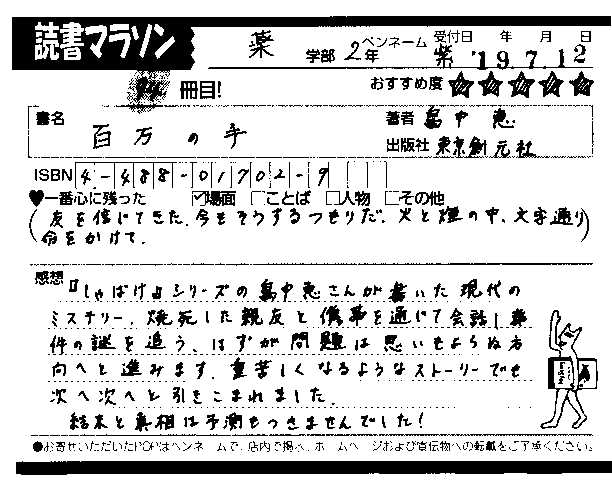 読書マラソン
薬 学部 2年 ペンネーム 紫 受付日 年 月 日 '19.7.12
冊目! おすすめ度 ☆☆☆☆☆
書名 百万の手
著者 畠中 恵
出版社 東京創元社
ISBN 4-488-01702-9
♥一番心に残った ☑場面 □ことば □人物 □その他
(友を信じてきた。今もそうするつもりだ。火と煙の中、文字通り
命をかけて。)
感想 『しゃばけ』シリーズの畠中恵さんが書いた現代の
ミステリー。焼死した親友と携帯を通じて会話し事
件の謎を追う、はずが問題は思いもよらぬ方
向へと進みます。重苦しくなるようなストーリーでも
次へ次へと引きこまれました。
結末と真相は予測もつきませんでした!
●お寄せいただいたPOPはペンネームで、店内で掲示、ホームページおよび宣伝物への転載をご了承ください。